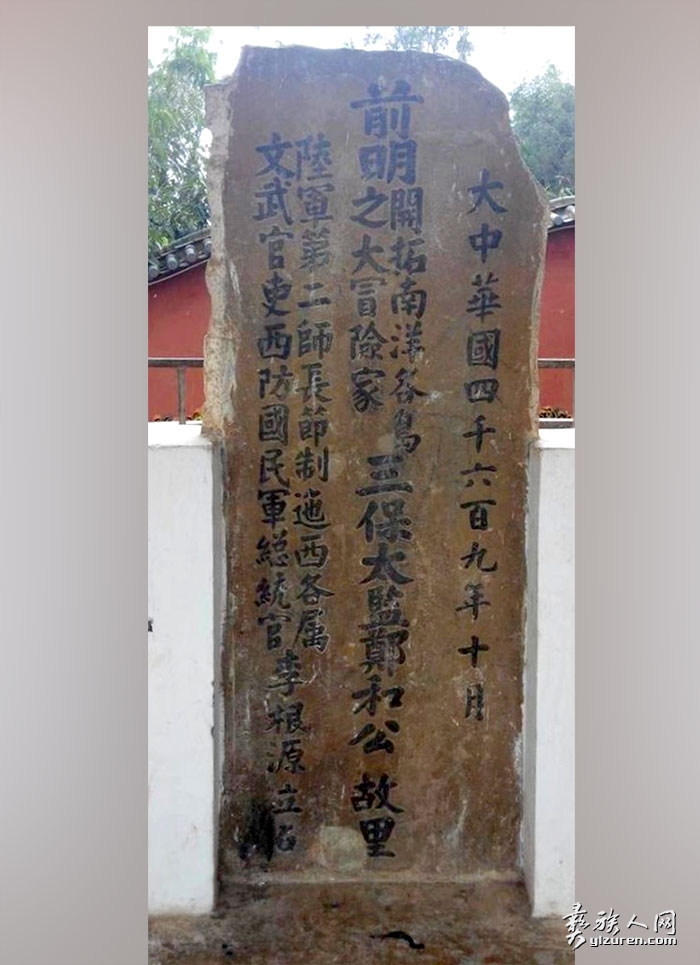 大中華國四千六百九年十月
前明開拓南洋各島之大冒險家三保太監鄭和公故里
陸軍第二師長節制迤西各属
文武官吏西防國民軍総統官李根源立石
彝族人网
yizuren.com